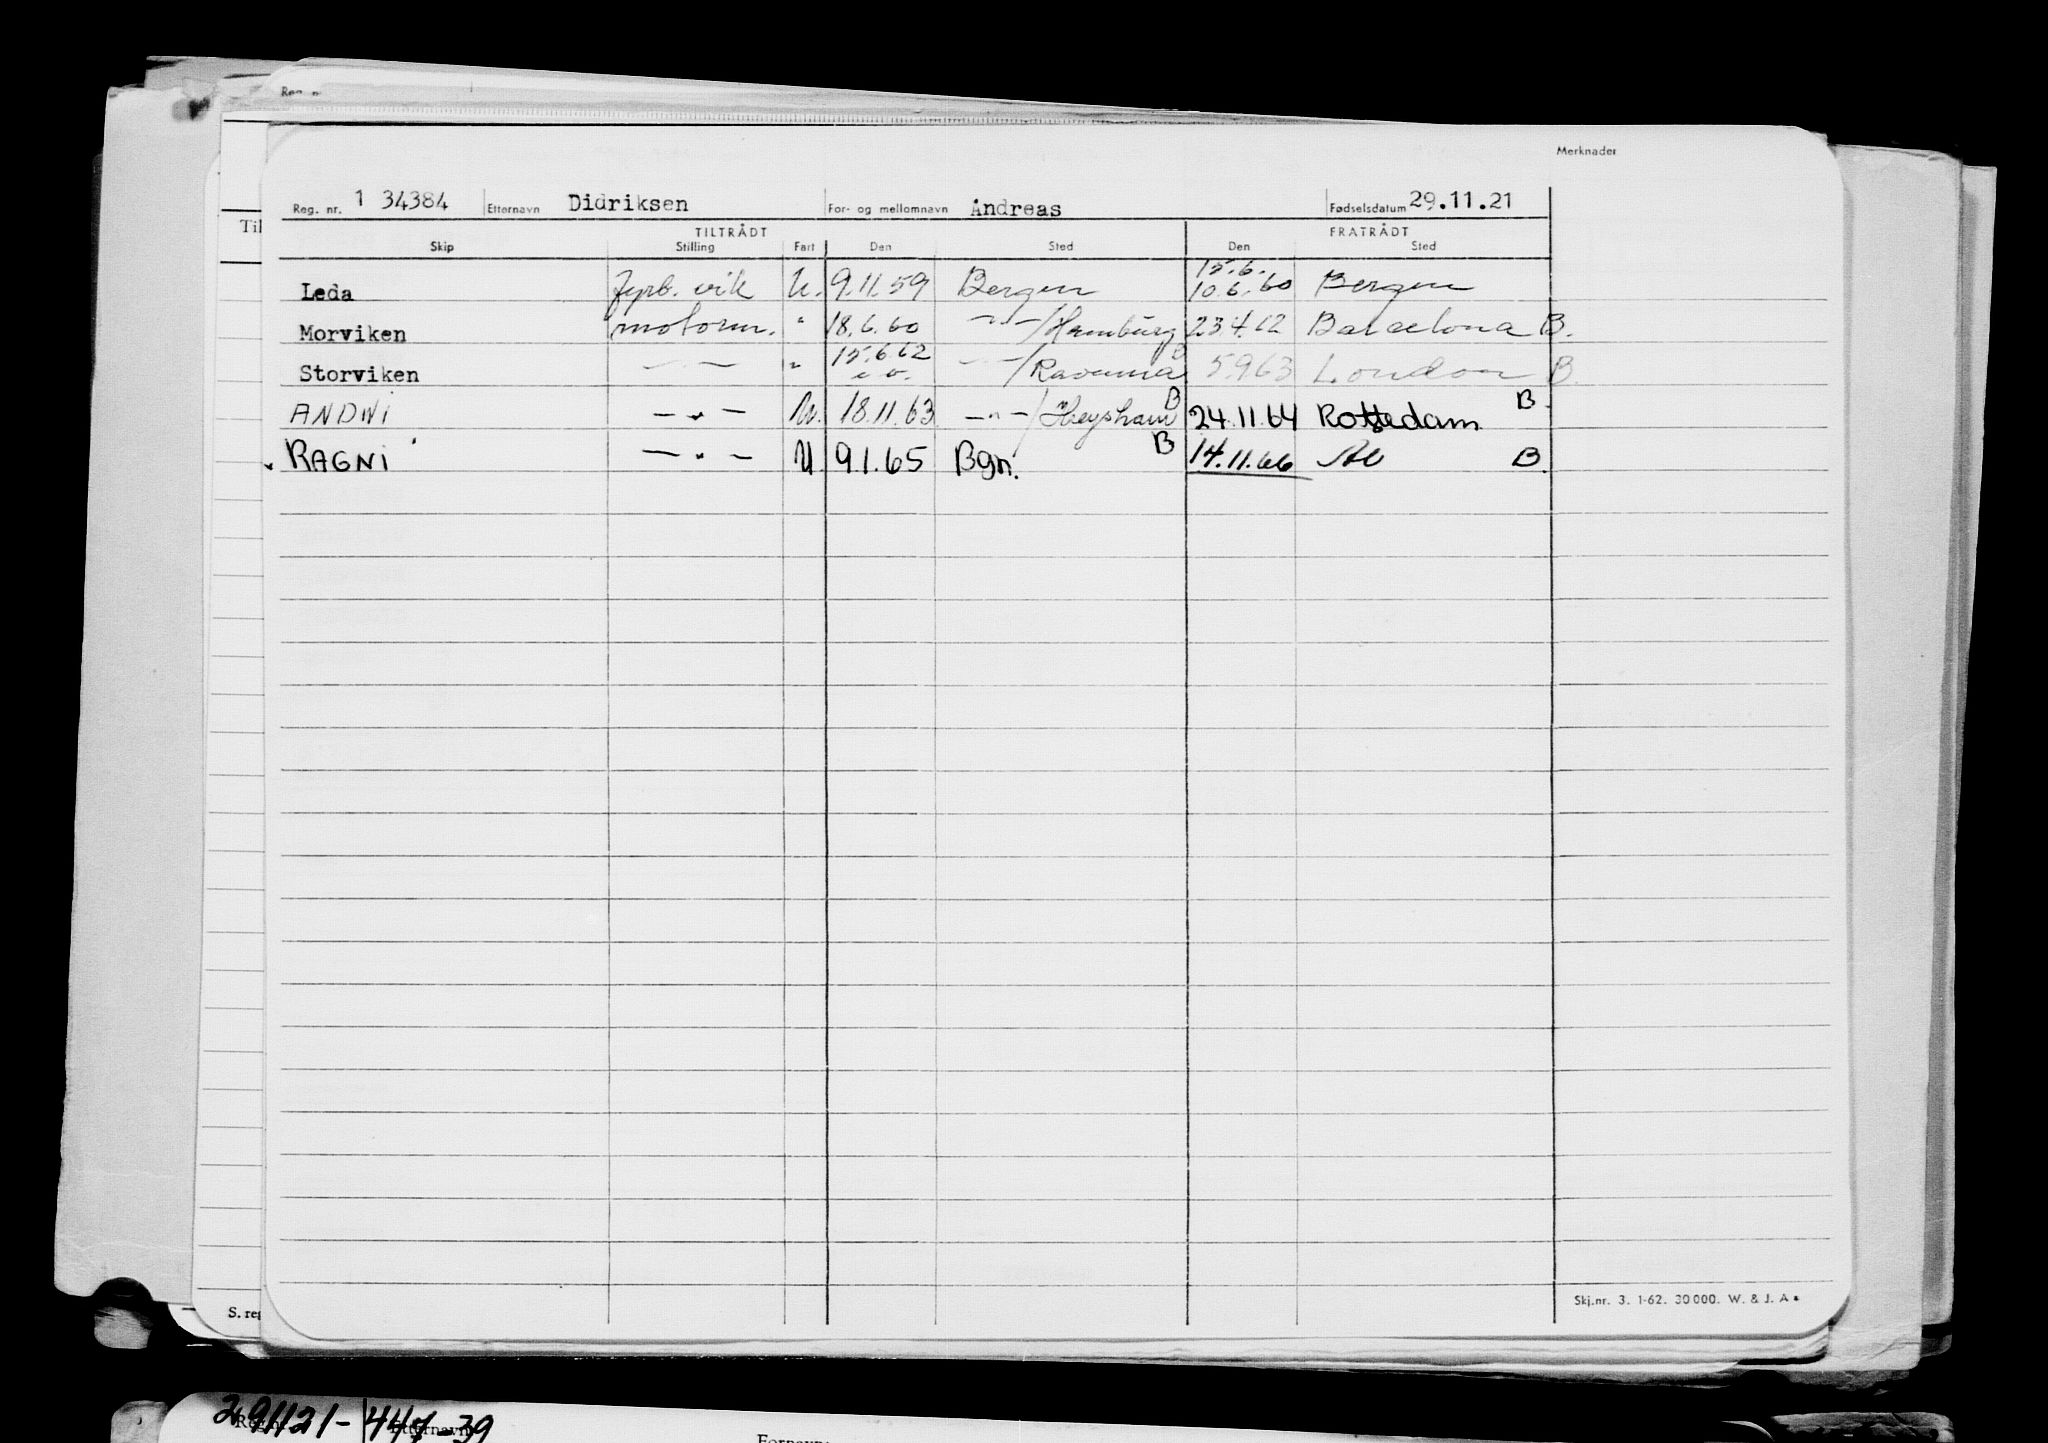 Merknader
Reg. nr. 1 34384 Etternavn Didriksen For- og mellomnavn Andreas Fødselsdatum 29.11.21
TILTRÅDT FRATRÅDT
Skip Stilling Fart Den Sted Den Sted
15.6.
Leda fyrb. vik U. 9.11.59 Bergen 10.6.60 Bergen
Morviken motorm. " 18.6.60 —"—/Hamburg 23.4.62 Barcelona B.
15.6.62 B
Storviken —"— " —"—/Ravenna 5.9.63 London B.
ANDWI —"— U. 18.11.63 —"—/Heysham B 24.11.64 Rottedam B
RAGNI —"— U 9.1.65 Bgn. B 14.11.66 B.
Skj.nr. 3. 1-62. 30 000. W. & J. A
Til
S. reg
291121-447-39
Etternavn
Fornavn